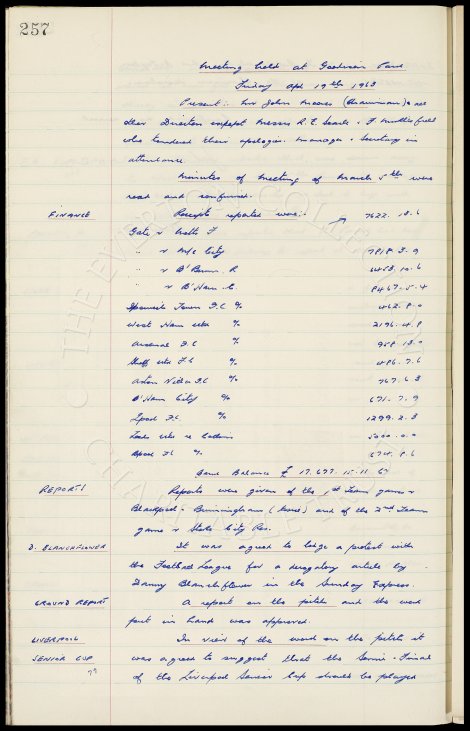 257
Meeting held at Goodison Park
Friday Apl 19th 1963
Present:- Mr John Moores (Chairman) & all
other Directors except Messrs R. E. Searle & F Micklesfield
who tendered their apologies. Manager & Secretary in
attendance.
Minutes of Meeting of March 5th were
read and confirmed.
FINANCE Receipts reported were:- 7622. 13. 6
Gate v Notts F
" v M/c City 7818. 3. 9
" v B'Burn R 10. 6
" v B'Ham C. 8467. 5. 4
Ipswich Town F.C % 462. 8. 0
West Ham Utd % 2196. 4. 8
Arsenal F.C % 958. 13. 0
Sheff Utd F.C % 486. 7. 6
Aston Villa F.C % 767. 6 3
B'Ham City % 671. 7. 9
Lpool F.C. % 1299. 2. 3
Leeds Utd re 5000. 0. 0
F.C % 8. 6
Bank Balance £ 17,677. 15. 11
REPORTS Reports were given of the 1st Team games v
Blackpool & Birmingham (home) and of the 2nd Team
game v Stoke City Res.
D. BLANCHFLOWER It was agreed to lodge a protest with
the Football League for a derogatory article by
Danny Blanchflower in the Sunday Express.
GROUND REPORT A report on the pitch and the work
put in hand was approved.
LIVERPOOL In view of the work on the pitch it
SENIOR CUP was agreed to suggest that the Semi-Final
of the Liverpool Senior Cup should be played
THE EVERTON COLLECTION
CHARITABLE TRUST